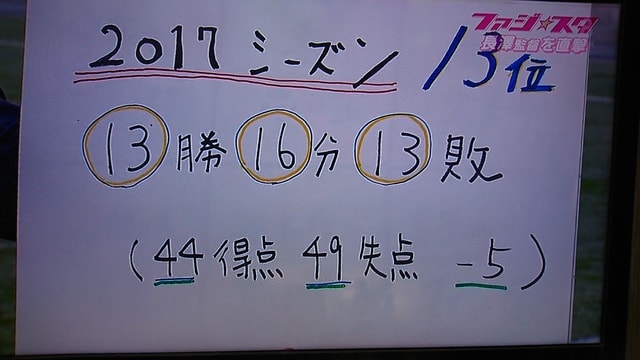 ファジ★スタ
長澤監督を直撃
2017 シーズン 13位
13勝 16分 13敗
(44得点 49失点 -5)